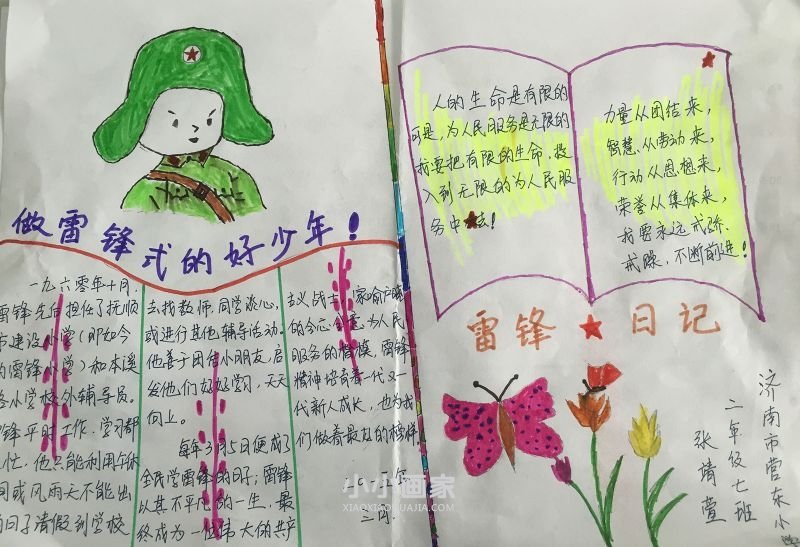 做雷锋式的好少年！
一九六零年十月，
雷锋先后担任了抚顺
市建设小学（即如今
的雷锋小学）和本溪
路小学校外辅导员。
雷锋平时工作、学习都
忙，他只能利用午休
间或风雨天不能出
的日子请假到学校
去找教师、同学谈心，
或进行其他辅导活动。
他善于团结小朋友，启
发他们好好学习，天天
向上。
每年3月5日便成了
全民学雷锋的日子；雷锋
以其不平凡的一生，最
终成为一位伟大的共产
主义战士，家喻户晓
的全心全意为人民
服务的楷模，雷锋
精神培育着一代又一
代新人成长，也为我
们做着最好的榜样
三月
人的生命是有限的
可是，为人民服务是无限的
我要把有限的生命，投
入到无限的为人民服
务中去！
力量从团结来，
智慧从劳动来，
行动从思想来，
荣誉从集体来，
我要永远戒骄、
戒躁，不断前进！
雷锋日记
济南市营东小
二年级七班
张靖萱
小小画家
XIAOXIAOHUAJIA.COM